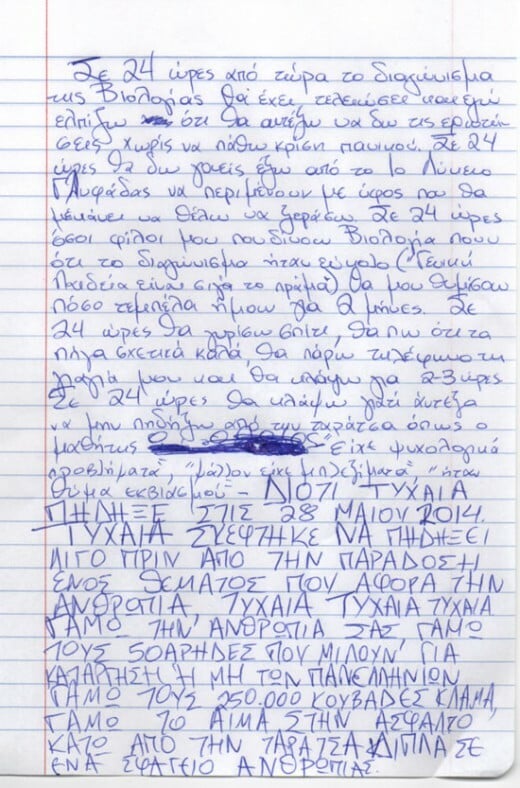 Σε 24 ώρες από τώρα το διαγώνισμα
της Βιολογίας θα έχει τελειώσει και εγώ
ελπίζω ότι θα αντέξω να δω τις ερωτή
σεις χωρίς να πάθω κρίση πανικού. Σε 24
ώρες θα δω γονείς έξω από το 1ο Λύκειο
Γλυφάδας να περιμένουν με ύφος που θα
με κάνει να θέλω να ξεράσω. Σε 24 ώρες
όσοι φίλοι μου που δίνουν Βιολογία πουν
ότι το διαγώνισμα ήταν εύκολο ("Γενική
Παιδεία είναι σιγά το πράμα) θα μου θυμίσουν
πόσο τεμπέλα ήμουν για 2 μήνες. Σε
24 ώρες θα γυρίσω σπίτι, θα πω ότι τα
πήγα σχετικά καλά, θα πάρω τηλέφωνο τη
γιαγιά μου και θα κλάψω για 2-3 ώρες
Σε 24 ώρες θα κλάψω γιατί άντεξα
να μην πηδήξω από την ταράτσα όπως ο
μαθητής "είχε ψυχολογικά
προβλήματα", "μάλλον είχε μπλεξίματα", "ήταν
θύμα εκβιασμού" - ΔΙΟΤΙ ΤΥΧΑΙΑ
ΠΗΔΗΞΕ ΣΤΙΣ 28 ΜΑΙΟΥ 2014.
ΤΥΧΑΙΑ ΣΚΕΦΤΗΚΕ ΝΑ ΠΗΔΗΞΕΙ
ΛΙΓΟ ΠΡΙΝ ΑΠΟ ΤΗΝ ΠΑΡΑΔΟΣΗ
ΕΝΟΣ ΘΕΜΑΤΟΣ ΠΟΥ ΑΦΟΡΑ ΤΗΝ
ΑΝΘΡΩΠΙΑ, ΤΥΧΑΙΑ ΤΥΧΑΙΑ ΤΥΧΑΙΑ
ΓΑΜΩ ΤΗΝ ΑΝΘΡΩΠΙΑ ΣΑΣ ΓΑΜΩ
ΤΟΥΣ 50ΑΡΗΔΕΣ ΠΟΥ ΜΙΛΟΥΝ ΓΙΑ
ΚΑΤΑΡΓΗΣΗ Ή ΜΗ ΤΩΝ ΠΑΝΕΛΛΗΝΙΩΝ
ΓΑΜΩ ΤΟΥΣ 250.000 ΚΟΥΒΑΔΕΣ ΚΛΑΜΑ,
ΓΑΜΩ ΤΟ ΑΙΜΑ ΣΤΗΝ ΑΣΦΑΛΤΟ
ΚΑΤΩ ΑΠΟ ΤΗΝ ΤΑΡΑΤΣΑ ΔΙΠΛΑ ΣΕ
ΕΝΑ ΣΦΑΓΕΙΟ ΑΝΘΡΩΠΙΑΣ.